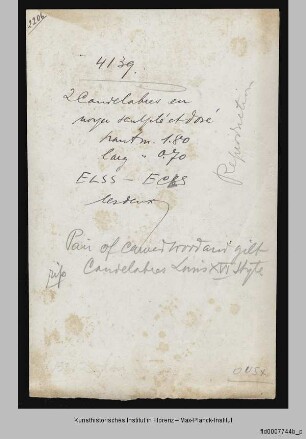 2206
4139.
2 Candelabres en
noyer sculpté et doré
haut m. 1.80
larg " 0.70
ELSS - 
les deux
Reproduction
Pair of carved wood and gilt
Candelabres Louis XVI Style
Kunsthistorisches Institut in Florenz - Max-Planck-Institut
fld0007744b_p